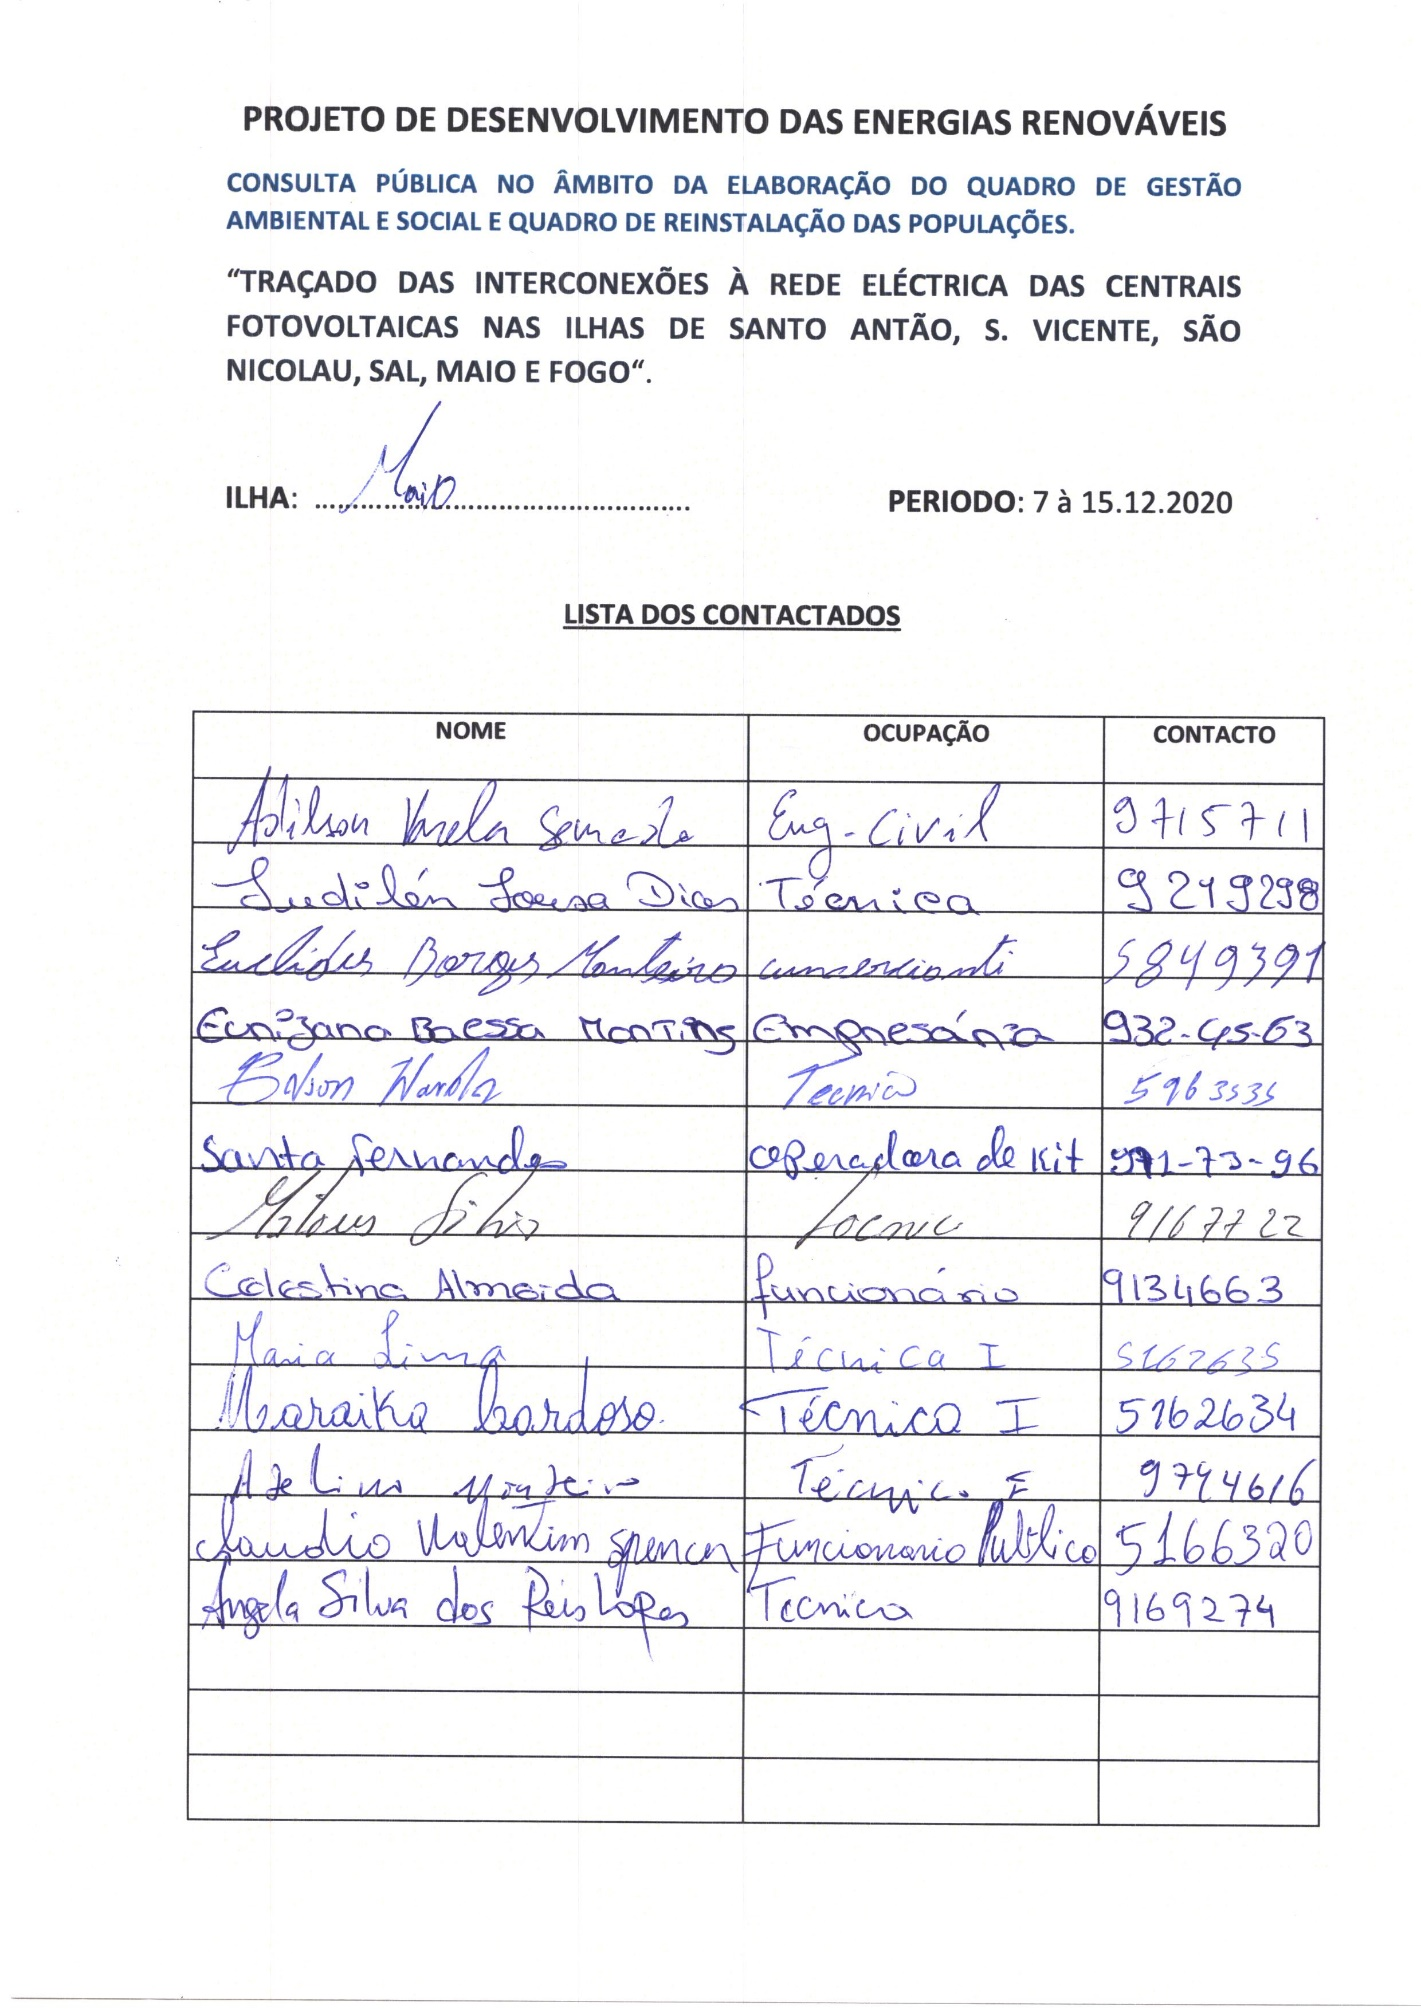 PROJETO DE DESENVOLVIMENTO DAS ENERGIAS RENOVÁVEIS
CONSULTA PÚBLICA NO ÂMBITO DA ELABORAÇÃO DO QUADRO DE GESTÃO
AMBIENTAL E SOCIAL E QUADRO DE REINSTALAÇÃO DAS POPULAÇÕES.
“TRAÇADO DAS INTERCONEXÕES À REDE ELÉCTRICA DAS CENTRAIS
FOTOVOLTAICAS NAS ILHAS DE SANTO ANTÃO, S. VICENTE, SÃO
NICOLAU, SAL, MAIO E FOGO“.
ILHA: Maio PERIODO: 7 à 15.12.2020
LISTA DOS CONTACTADOS
NOME OCUPAÇÃO CONTACTO
Adilson Varela Semedo Eng-Civil 9715711
Sousa Dias Técnica 9219298
Euclides Borges Monteiro 5849391
Baessa Empresária 932-45-63
Tecnico 5963535
Santa Fernandes operadora de Kit 971-73-96
Silva 9167722
Celestina Almeida funcionário 9134663
Maria Lima Técnica I 5162635
Maraika Cardoso. Técnica I 5162634
Adelino Monteiro Técnico 9744616
Claudio Valentim Spencer Funcionario Publico 5166320
Angela Silva dos Reis Lopes Tecnica 9169274